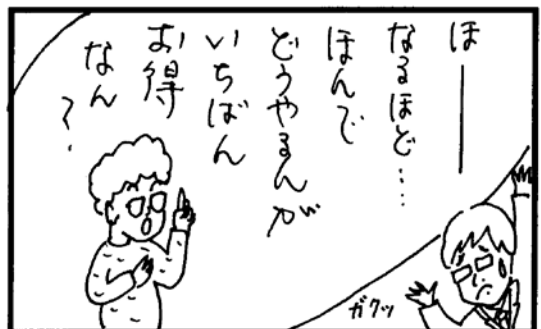 ほー
なるほど……
ほんで
どうやるんが
いちばん
お得
なん
?
ガクッ